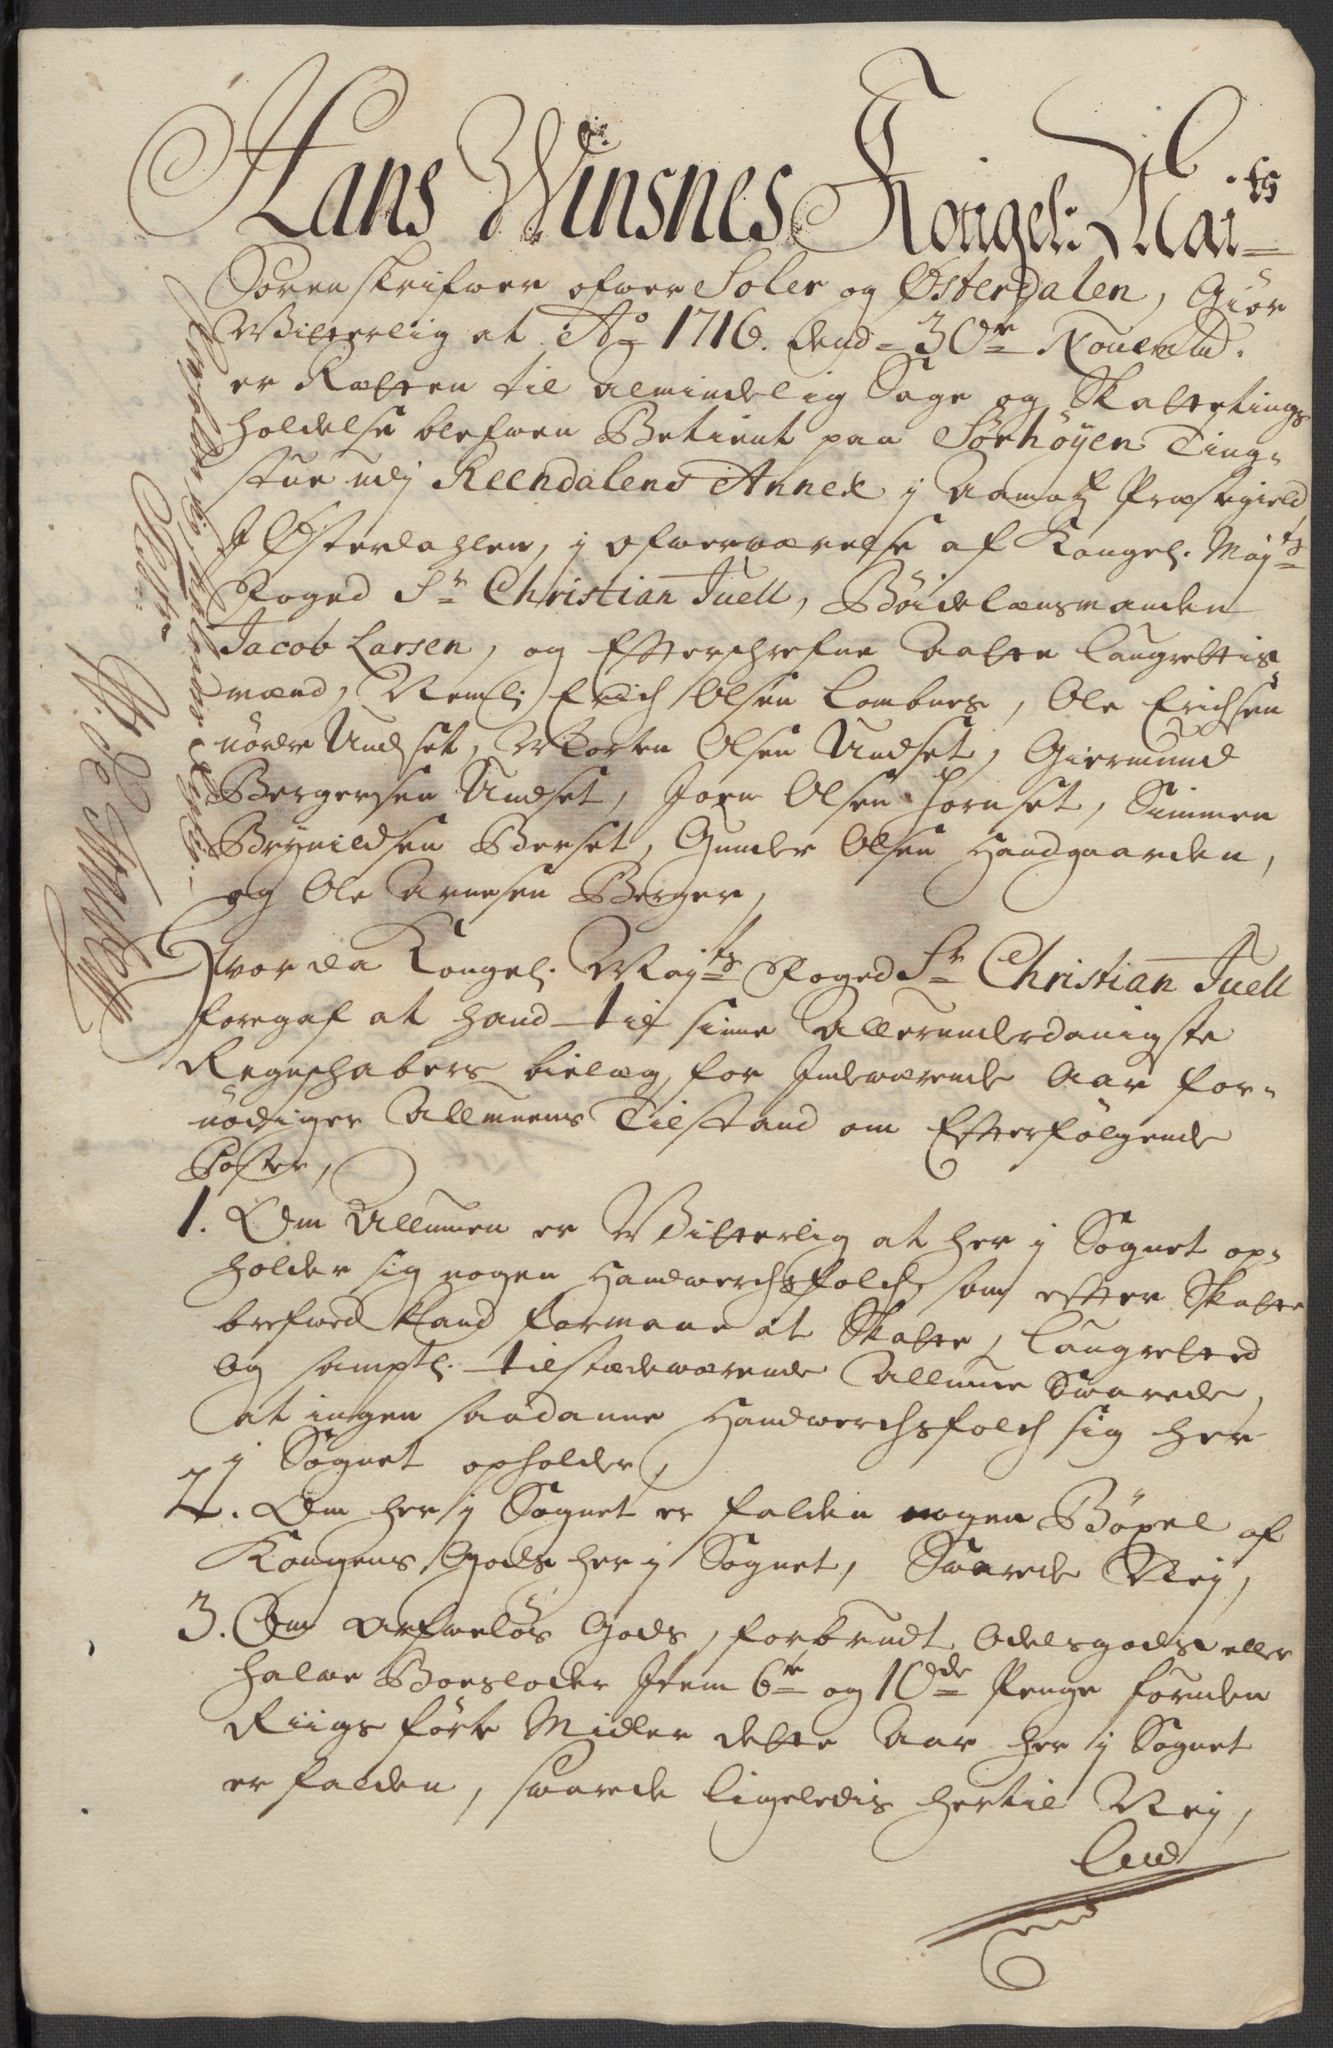 Hans Winsnes Kongel: Mai.ts
Sorenskrifwer ofwer Soler og Østerdalen, Giør
Witterlig at Ao 1716. dend 30te Novemb.
er Retten til almindelig Sage og Skattetings
holdelse blefwen Betient paa Sørhøyen Ting-
stue udj Reendalens Annex j Aamotz Præstegield,
J Østerdahlen, j ofwerværelse af Kongel. Mayts
Foged Sr Christian Juell, Böidelænsmanden
Jacob Larsen, og Effterschrefne Aatte Laugrettis
mænd, Nemlj Erich Olsen Lombnes, Ole Erichsen
nördre Undset, Morten Olsen Undset, Giermund
Bergersen Undset, Joen Olsen Hornset, Simmen
Brynildsen Berset, Gunder Olsen Haudgaarden,
og Ole Arnesen Berger,
Hvor da Kongel. Mayts Foged Sr Christian Juell
foregaf at hand til sinne Allerunderdanigste
Regnschabers bielag, for Indeværende Aar for-
nödiger Allmuens Tilstand om Effterfölgende
Poster,
1. Om Allmuen er Witterlig at her j Sognet op-
holder sig nogen Handwerchsfolch, som effter Skatte
brefwed kand formaae at Skatte, Laugretted
og samptl. tilstædeværende Allmue Swarede,
at ingen saadanne Handwerchsfolch sig her
j Sognet opholder,
2. Om her j Sognet er falden nogen Böxel af
Kongens Gods her j Sognet, Swarede Nej,
3. Om Arfwelös Gods, forbrudt Odelsgods eller
halwe Boesloder Item 6te og 10de Penge forudem
Riigs förte Midler dette Aar her j Sognet
er falden, swarede ligeledis hertil Nej,